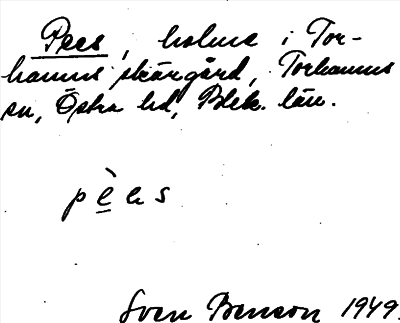 Pees, holme i Tor-
hamns skärgård, Torhamns
sn, Östra hd, Blek. län.
pèes
Sven Benson 1949.